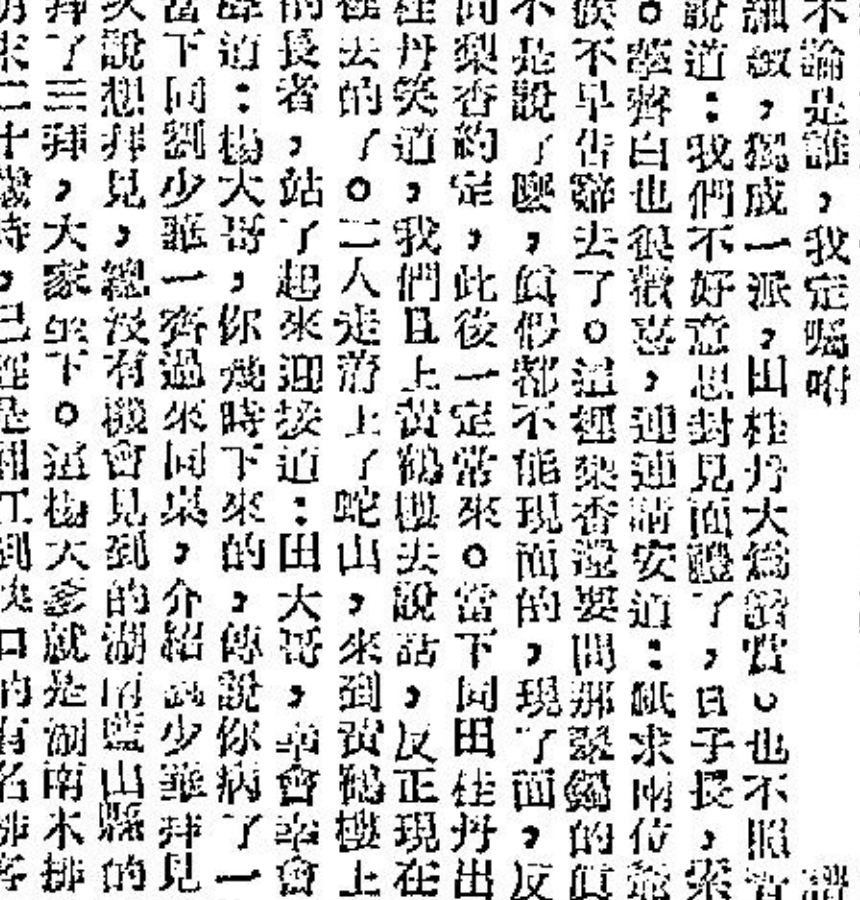 不論是誰，我定囑咐
細緻，獨成一派，田桂丹大為讚賞。也不照
說道：我們不好意思封見面禮了，日子長，
。蕐齊白也很歡喜，連連請安道：祇求兩位爺
族不早告辭去了。這裡梨香還要問那翠鐲的真
不是說了麼，真假都不能現面的，現了面，反
同梨香約定，此後一定常來。當下同田桂丹出
桂丹笑道，我們且上黃鶴樓去說話，反正現在
去的了。二人走着上了蛇山，來到黃鶴樓上
的長者，站了起來迎接道：田大哥，幸會幸會
道：楊大哥，你幾時下來的，傳說你病了一
當下同劉少華一齊過來同桌，介紹劉少華拜見
說想拜見，總沒有機會見到的湖南藍山縣的
拜了三拜，大家坐下。這楊大爹就是湖南木排
來二十幾時，已經是到漢口的有名排客